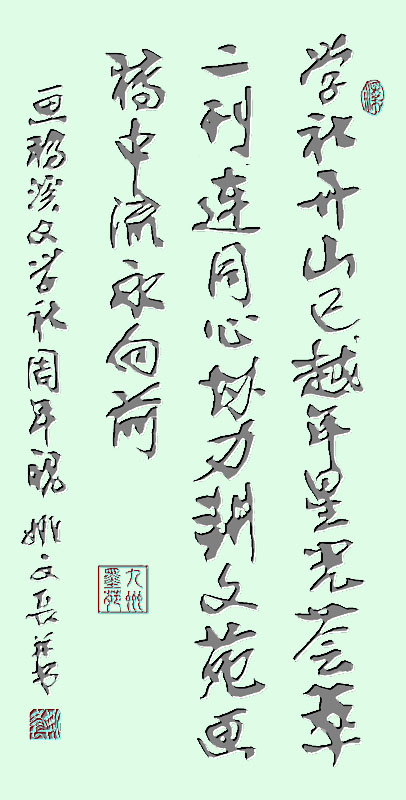 学社开山已越年星光荟萃
二刊连同心协力耕文苑画
稿中流永向前
画稿溪文学社周年 姚文长并书
九州墨苑